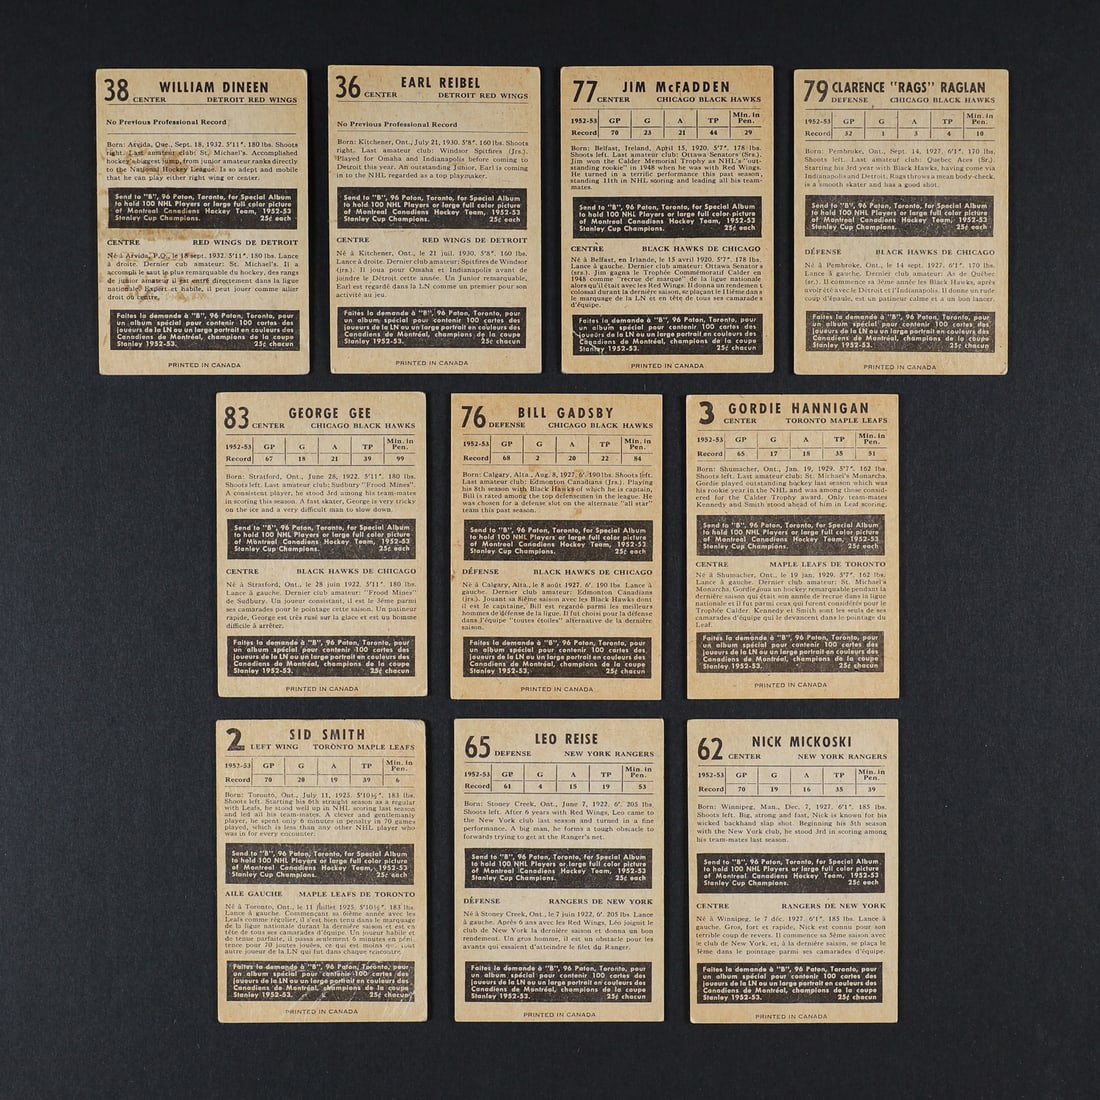 38 WILLIAM DINEEN
CENTER DETROIT RED WINGS
No Previous Professional Record
Born: Arvida, Que., Sept. 18, 1932. 5'11". 180 lbs. Shoots
right. Last amateur club: St. Michael's. Accomplished
hockey's biggest jump, from junior amateur ranks directly
to the National Hockey League. Is so adept and mobile
that he can play either right wing or center.
Send to "B", 96 Paton, Toronto, for Special Album
to hold 100 NHL Players or large full color picture
of Montreal Canadiens Hockey Team, 1952-53
Stanley Cup Champions. 25¢ each
CENTRE RED WINGS DE DETROIT
Né à Arvida, P.Q., le 18 sept. 1932. 5'11". 180 lbs. Lance
à droite. Dernier club amateur: St. Michael's. Il a
accompli le saut le plus remarquable du hockey, des rangs
de junior amateur il est entré directement dans la ligue
nationale. Expert et habile, il peut jouer comme ailier
droit ou centre.
Faites la demande à "B", 96 Paton, Toronto, pour
un album spécial pour contenir 100 cartes des
joueurs de la LN ou un large portrait en couleurs des
Canadiens de Montréal, champions de la coupe
Stanley 1952-53. 25¢ chacun
PRINTED IN CANADA
36 EARL REIBEL
CENTER DETROIT RED WINGS
No Previous Professional Record
Born: Kitchener, Ont., July 21, 1930. 5'8". 160 lbs. Shoots
right. Last amateur club: Windsor Spitfires (Jrs.).
Played for Omaha and Indianapolis before coming to
Detroit this year. An outstanding Junior, Earl is coming
in to the NHL regarded as a top playmaker.
Send to "B", 96 Paton, Toronto, for Special Album
to hold 100 NHL Players or large full color picture
of Montreal Canadiens Hockey Team, 1952-53
Stanley Cup Champions. 25¢ each
CENTRE RED WINGS DE DETROIT
Né à Kitchener, Ont., le 21 juil. 1930. 5'8". 160 lbs.
Lance à droite. Dernier club amateur: Spitfires de Windsor
(jrs.). Il joua pour Omaha et Indianapolis avant de
joindre Detroit cette année. Un Junior remarquable,
Earl est regardé dans la LN comme un premier pour son
activité au jeu.
Faites la demande à "B", 96 Paton, Toronto, pour
un album spécial pour contenir 100 cartes des
joueurs de la LN ou un large portrait en couleurs des
Canadiens de Montréal, champions de la coupe
Stanley 1952-53. 25¢ chacun
PRINTED IN CANADA
77 JIM McFADDEN
CENTER CHICAGO BLACK HAWKS
1952-53 GP G A TP Min. in Pen.
Record 70 23 21 44 29
Born: Belfast, Ireland, April 15, 1920, 5'7". 178 lbs.
Shoots left. Last amateur club: Ottawa Senators (Srs.).
Jim won the Calder Memorial Trophy as NHL's "out-
standing rookie" in 1948 when he was with Red Wings.
He turned in a terrific performance this past season,
standing 11th in NHL scoring and leading all his team-
mates.
Send to "B", 96 Paton, Toronto, for Special Album
to hold 100 NHL Players or large full color picture
of Montreal Canadiens Hockey Team, 1952-53
Stanley Cup Champions. 25¢ each
CENTRE BLACK HAWKS DE CHICAGO
Né à Belfast, en Irlande, le 15 avril 1920. 5'7". 178 lbs.
Lance à gauche. Dernier club amateur: Ottawa Senators
(srs.). Jim gagna le Trophée Commémoratif Calder en
1948 comme "recrue de marque" de la ligue nationale
alors qu'il était avec les Red Wings. Il donna un rendement
colossal durant la dernière saison, se plaçant le 11ième dans
le marquage de la LN et en tête de tous ses camarades
d'équipe.
Faites la demande à "B", 96 Paton, Toronto, pour
un album spécial pour contenir 100 cartes des
joueurs de la LN ou un large portrait en couleurs des
Canadiens de Montréal, champions de la coupe
Stanley 1952-53. 25¢ chacun
PRINTED IN CANADA
79 CLARENCE "RAGS" RAGLAN
DEFENSE CHICAGO BLACK HAWKS
1952-53 GP G A TP Min. in Pen.
Record 32 1 3 4 10
Born: Pembroke, Ont., Sept. 14, 1927. 6'1". 170 lbs.
Shoots left. Last amateur club: Quebec Aces (Sr.).
Starting his 3rd year with Black Hawks, having come via
Indianapolis and Detroit. Rags throws a mean body-check,
is a smooth skater and has a good shot.
Send to "B", 96 Paton, Toronto, for Special Album
to hold 100 NHL Players or large full color picture
of Montreal Canadiens Hockey Team, 1952-53
Stanley Cup Champions. 25¢ each
DÉFENSE BLACK HAWKS DE CHICAGO
Né à Pembroke, Ont., le 14 sept. 1927. 6'1". 170 lbs.
Lance à gauche. Dernier club amateur: As de Québec
(sr.). Il commence sa 3ème année les Black Hawks, après
avoir été avec le Détroit et l'Indianapolis. Il donne un rude
coup d'épaule, est un patineur calme et a un bon lancer.
Faites la demande à "B", 96 Paton, Toronto, pour
un album spécial pour contenir 100 cartes des
joueurs de la LN ou un large portrait en couleurs des
Canadiens de Montréal, champions de la coupe
Stanley 1952-53. 25¢ chacun
PRINTED IN CANADA
83 GEORGE GEE
CENTER CHICAGO BLACK HAWKS
1952-53 GP G A TP Min. in Pen.
Record 67 18 21 39 99
Born: Stratford, Ont., June 28, 1922. 5'11". 180 lbs.
Shoots left. Last amateur club; Sudbury "Frood Mines".
A consistent player, he stood 3rd among his team-mates
in scoring this season. A fast skater, George is very tricky
on the ice and a very difficult man to slow down.
Send to "B", 96 Paton, Toronto, for Special Album
to hold 100 NHL Players or large full color picture
of Montreal Canadiens Hockey Team, 1952-53
Stanley Cup Champions. 25¢ each
CENTRE BLACK HAWKS DE CHICAGO
Né à Stratford, Ont., le 28 juin 1922. 5'11". 180 lbs.
Lance à gauche. Dernier club amateur: "Frood Mines"
de Sudbury. Un joueur consistant, il est le 3ème parmi
ses camarades pour le pointage cette saison. Un patineur
rapide, George est très rusé sur la glace et est un homme
difficile à arrêter.
Faites la demande à "B", 96 Paton, Toronto, pour
un album spécial pour contenir 100 cartes des
joueurs de la LN ou un large portrait en couleurs des
Canadiens de Montréal, champions de la coupe
Stanley 1952-53. 25¢ chacun
PRINTED IN CANADA
76 BILL GADSBY
DEFENSE CHICAGO BLACK HAWKS
1952-53 GP G A TP Min. in Pen.
Record 68 2 20 22 84
Born: Calgary, Alta., Aug. 8, 1927. 6'. 190 lbs. Shoots left.
Last amateur club: Edmonton Canadians (Jrs.). Playing
his 8th season with Black Hawks of which he is captain,
Bill is rated among the top defensemen in the league. He
was chosen for a defense slot on the alternate "all star"
team this past season.
Send to "B", 96 Paton, Toronto, for Special Album
to hold 100 NHL Players or large full color picture
of Montreal Canadiens Hockey Team, 1952-53
Stanley Cup Champions. 25¢ each
DÉFENSE BLACK HAWKS DE CHICAGO
Né à Calgary, Alta., le 8 août 1927. 6'. 190 lbs. Lance à
gauche. Dernier club amateur: Edmonton Canadians
(jrs.). Jouant sa 8ième saison avec les Black Hawks dont
il est le capitaine, Bill est regardé parmi les meilleurs
hommes de défense de la ligue. Il fut choisi pour la défense
dans l'équipe "toutes étoiles" alternative de la dernière
saison.
Faites la demande à "B", 96 Paton, Toronto, pour
un album spécial pour contenir 100 cartes des
joueurs de la LN ou un large portrait en couleurs des
Canadiens de Montréal, champions de la coupe
Stanley 1952-53. 25¢ chacun
PRINTED IN CANADA
3 GORDIE HANNIGAN
CENTER TORONTO MAPLE LEAFS
1952-53 GP G A TP Min. in Pen.
Record 65 17 18 35 51
Born: Shumacher, Ont., Jan. 19, 1929. 5'7". 162 lbs.
Shoots left. Last amateur club: St. Michael's Monarchs.
Gordie played outstanding hockey last season which was
his rookie year in the NHL and was among those consid-
ered for the Calder Trophy award. Only team-mates
Kennedy and Smith stood ahead of him in Leaf scoring.
Send to "B", 96 Paton, Toronto, for Special Album
to hold 100 NHL Players or large full color picture
of Montreal Canadiens Hockey Team, 1952-53
Stanley Cup Champions. 25¢ each
CENTRE MAPLE LEAFS DE TORONTO
Né à Shumacher, Ont., le 19 jan. 1929. 5'7". 162 lbs.
Lance à gauche. Dernier club amateur: St. Michael's
Monarchs. Gordie joua un hockey remarquable pendant la
dernière saison qui était son année de recrue dans la ligue
nationale et il fut parmi ceux qui furent considérés pour le
Trophée Calder. Kennedy et Smith sont les seuls de ses
camarades d'équipe qui le devancent dans le pointage du
Leaf.
Faites la demande à "B", 96 Paton, Toronto, pour
un album spécial pour contenir 100 cartes des
joueurs de la LN ou un large portrait en couleurs des
Canadiens de Montréal, champions de la coupe
Stanley 1952-53. 25¢ chacun
PRINTED IN CANADA
2 SID SMITH
LEFT WING TORONTO MAPLE LEAFS
1952-53 GP G A TP Min. in Pen.
Record 70 20 19 39 6
Born: Toronto, Ont., July 11, 1925. 5'10½". 183 lbs.
Shoots left. Starting his 6th straight season as a regular
with Leafs, he stood well up in NHL scoring last season
and led all his team-mates. A clever and gentlemanly
player, he spent only 6 minutes in penalty in 70 games
played, which is less than any other NHL player who
was in for every encounter.
Send to "B", 96 Paton, Toronto, for Special Album
to hold 100 NHL Players or large full color picture
of Montreal Canadiens Hockey Team, 1952-53
Stanley Cup Champions. 25¢ each
AILE GAUCHE MAPLE LEAFS DE TORONTO
Né à Toronto, Ont., le 11 juillet 1925. 5'10½". 183 lbs.
Lance à gauche. Commençant sa 6ième année avec les
Leafs comme régulier, il s'est bien tenu dans le marquage
de la ligue nationale durant la dernière saison et est en
tête de tous ses camarades d'équipe. Un joueur habile et
de tenue parfaite, il passa seulement 6 minutes en péni-
tence pour 70 joutes jouées, ce qui est moins que tout
autre joueur de la LN qui fut dans chaque rencontre.
Faites la demande à "B", 96 Paton, Toronto, pour
un album spécial pour contenir 100 cartes des
joueurs de la LN ou un large portrait en couleurs des
Canadiens de Montréal, champions de la coupe
Stanley 1952-53. 25¢ chacun
PRINTED IN CANADA
65 LEO REISE
DEFENSE NEW YORK RANGERS
1952-53 GP G A TP Min. in Pen.
Record 61 4 15 19 53
Born: Stoney Creek, Ont., June 7, 1922. 6'. 205 lbs.
Shoots left. After 6 years with Red Wings, Leo came to
the New York club last season and turned in a fine
performance. A big man, he forms a tough obstacle to
forwards trying to get at the Ranger's net.
Send to "B", 96 Paton, Toronto, for Special Album
to hold 100 NHL Players or large full color picture
of Montreal Canadiens Hockey Team, 1952-53
Stanley Cup Champions. 25¢ each
DÉFENSE RANGERS DE NEW YORK
Né à Stoney Creek, Ont., le 7 juin 1922. 6'. 205 lbs. Lance
à gauche. Après 6 ans avec les Red Wings, Léo joignit
le club de New York la dernière saison et donna un bon
rendement. Un gros homme, il est un obstacle pour les
avants qui essaient d'atteindre le filet du Ranger.
Faites la demande à "B", 96 Paton, Toronto, pour
un album spécial pour contenir 100 cartes des
joueurs de la LN ou un large portrait en couleurs des
Canadiens de Montréal, champions de la coupe
Stanley 1952-53. 25¢ chacun
PRINTED IN CANADA
62 NICK MICKOSKI
CENTER NEW YORK RANGERS
1952-53 GP G A TP Min. in Pen.
Record 70 19 16 35 39
Born: Winnipeg, Man., Dec. 7, 1927. 6'1". 185 lbs.
Shoots left. Big, strong and fast, Nick is known for his
wicked backhand slap shot. Beginning his 5th season
with the New York club, he stood 3rd in scoring among
his team-mates last season.
Send to "B", 96 Paton, Toronto, for Special Album
to hold 100 NHL Players or large full color picture
of Montreal Canadiens Hockey Team, 1952-53
Stanley Cup Champions. 25¢ each
CENTRE RANGERS DE NEW YORK
Né à Winnipeg, le 7 déc. 1927. 6'1". 185 lbs. Lance à
gauche. Gros, fort et rapide, Nick est connu pour son
terrible coup de revers. Il commence sa 5ème saison avec
le club de New York, et, à la dernière saison, se plaça le
3ème dans le pointage parmi ses camarades d'équipe.
Faites la demande à "B", 96 Paton, Toronto, pour
un album spécial pour contenir 100 cartes des
joueurs de la LN ou un large portrait en couleurs des
Canadiens de Montréal, champions de la coupe
Stanley 1952-53. 25¢ chacun
PRINTED IN CANADA